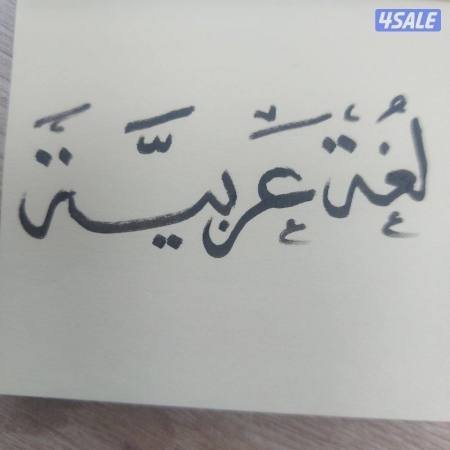 4SALE
لُغة عَربيَّة